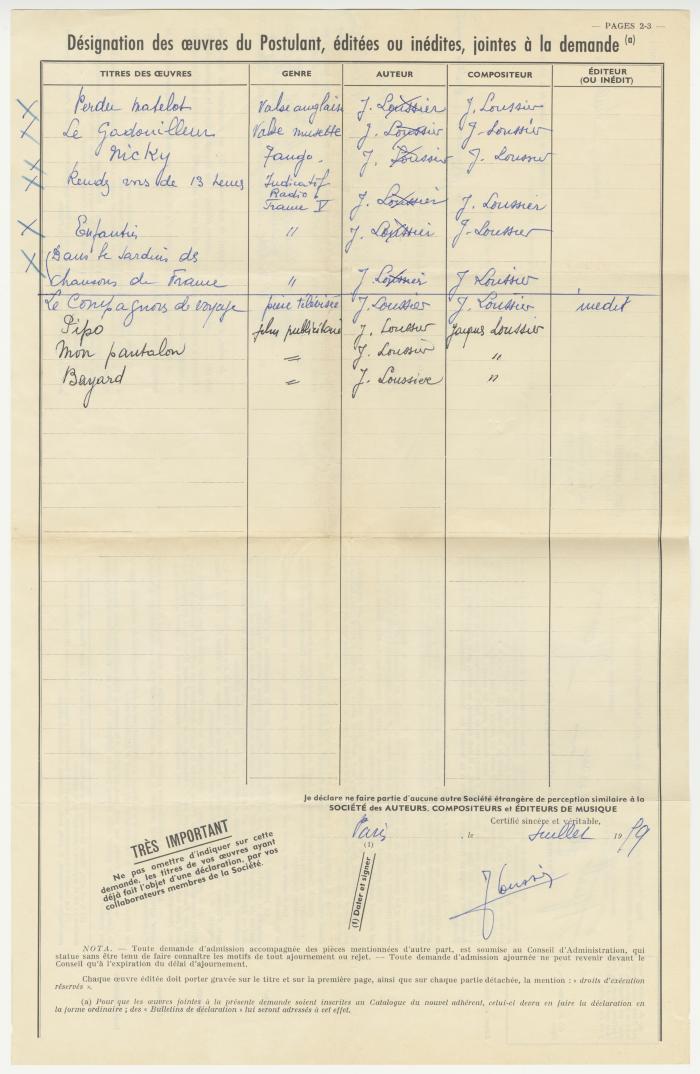 — PAGES 2-3 —
Désignation des œuvres du Postulant, éditées ou inédites, jointes à la demande (a)
TITRES DES ŒUVRES GENRE AUTEUR COMPOSITEUR ÉDITEUR (OU INÉDIT)
Perdu matelot Valse anglaise J. Loussier J. Loussier
Le Gadouilleur Valse musette J. Loussier J. Loussier
Nicky Tango. J. Loussier J. Loussier
Rendez vous de 13 heures Indicatif
Radio
France V J. Loussier J. Loussier
Enfantin " J. Loussier J. Loussier
Dans le Jardins des
Chansons de France " J. Loussier J. Loussier
Le Compagnons de voyage pièce télévisée J. Loussier J. Loussier inedit
Pipo film publicitaire J. Loussier Jacques Loussier
Mon pantalon = J. Loussier "
Bayard = J. Loussier "
Je déclare ne faire partie d'aucune autre Société étrangère de perception similaire à la
SOCIÉTÉ des AUTEURS, COMPOSITEURS et ÉDITEURS DE MUSIQUE
Certifié sincère et véritable,
Paris , le Juillet 1959
(1)
(1) Dater et signer
J Loussier
TRÈS IMPORTANT
Ne pas omettre d'indiquer sur cette
demande, les titres de vos œuvres ayant
déjà fait l'objet d'une déclaration, par vos
collaborateurs membres de la Société.
NOTA. — Toute demande d'admission accompagnée des pièces mentionnées d'autre part, est soumise au Conseil d'Administration, qui
statue sans être tenu de faire connaître les motifs de tout ajournement ou rejet. — Toute demande d'admission ajournée ne peut revenir devant le
Conseil qu'à l'expiration du délai d'ajournement.
Chaque œuvre éditée doit porter gravée sur le titre et sur la première page, ainsi que sur chaque partie détachée, la mention : « droits d'exécution
réservés ».
(a) Pour que les œuvres jointes à la présente demande soient inscrites au Catalogue du nouvel adhérent, celui-ci devra en faire la déclaration en
la forme ordinaire ; des « Bulletins de déclaration » lui seront adressés à cet effet.